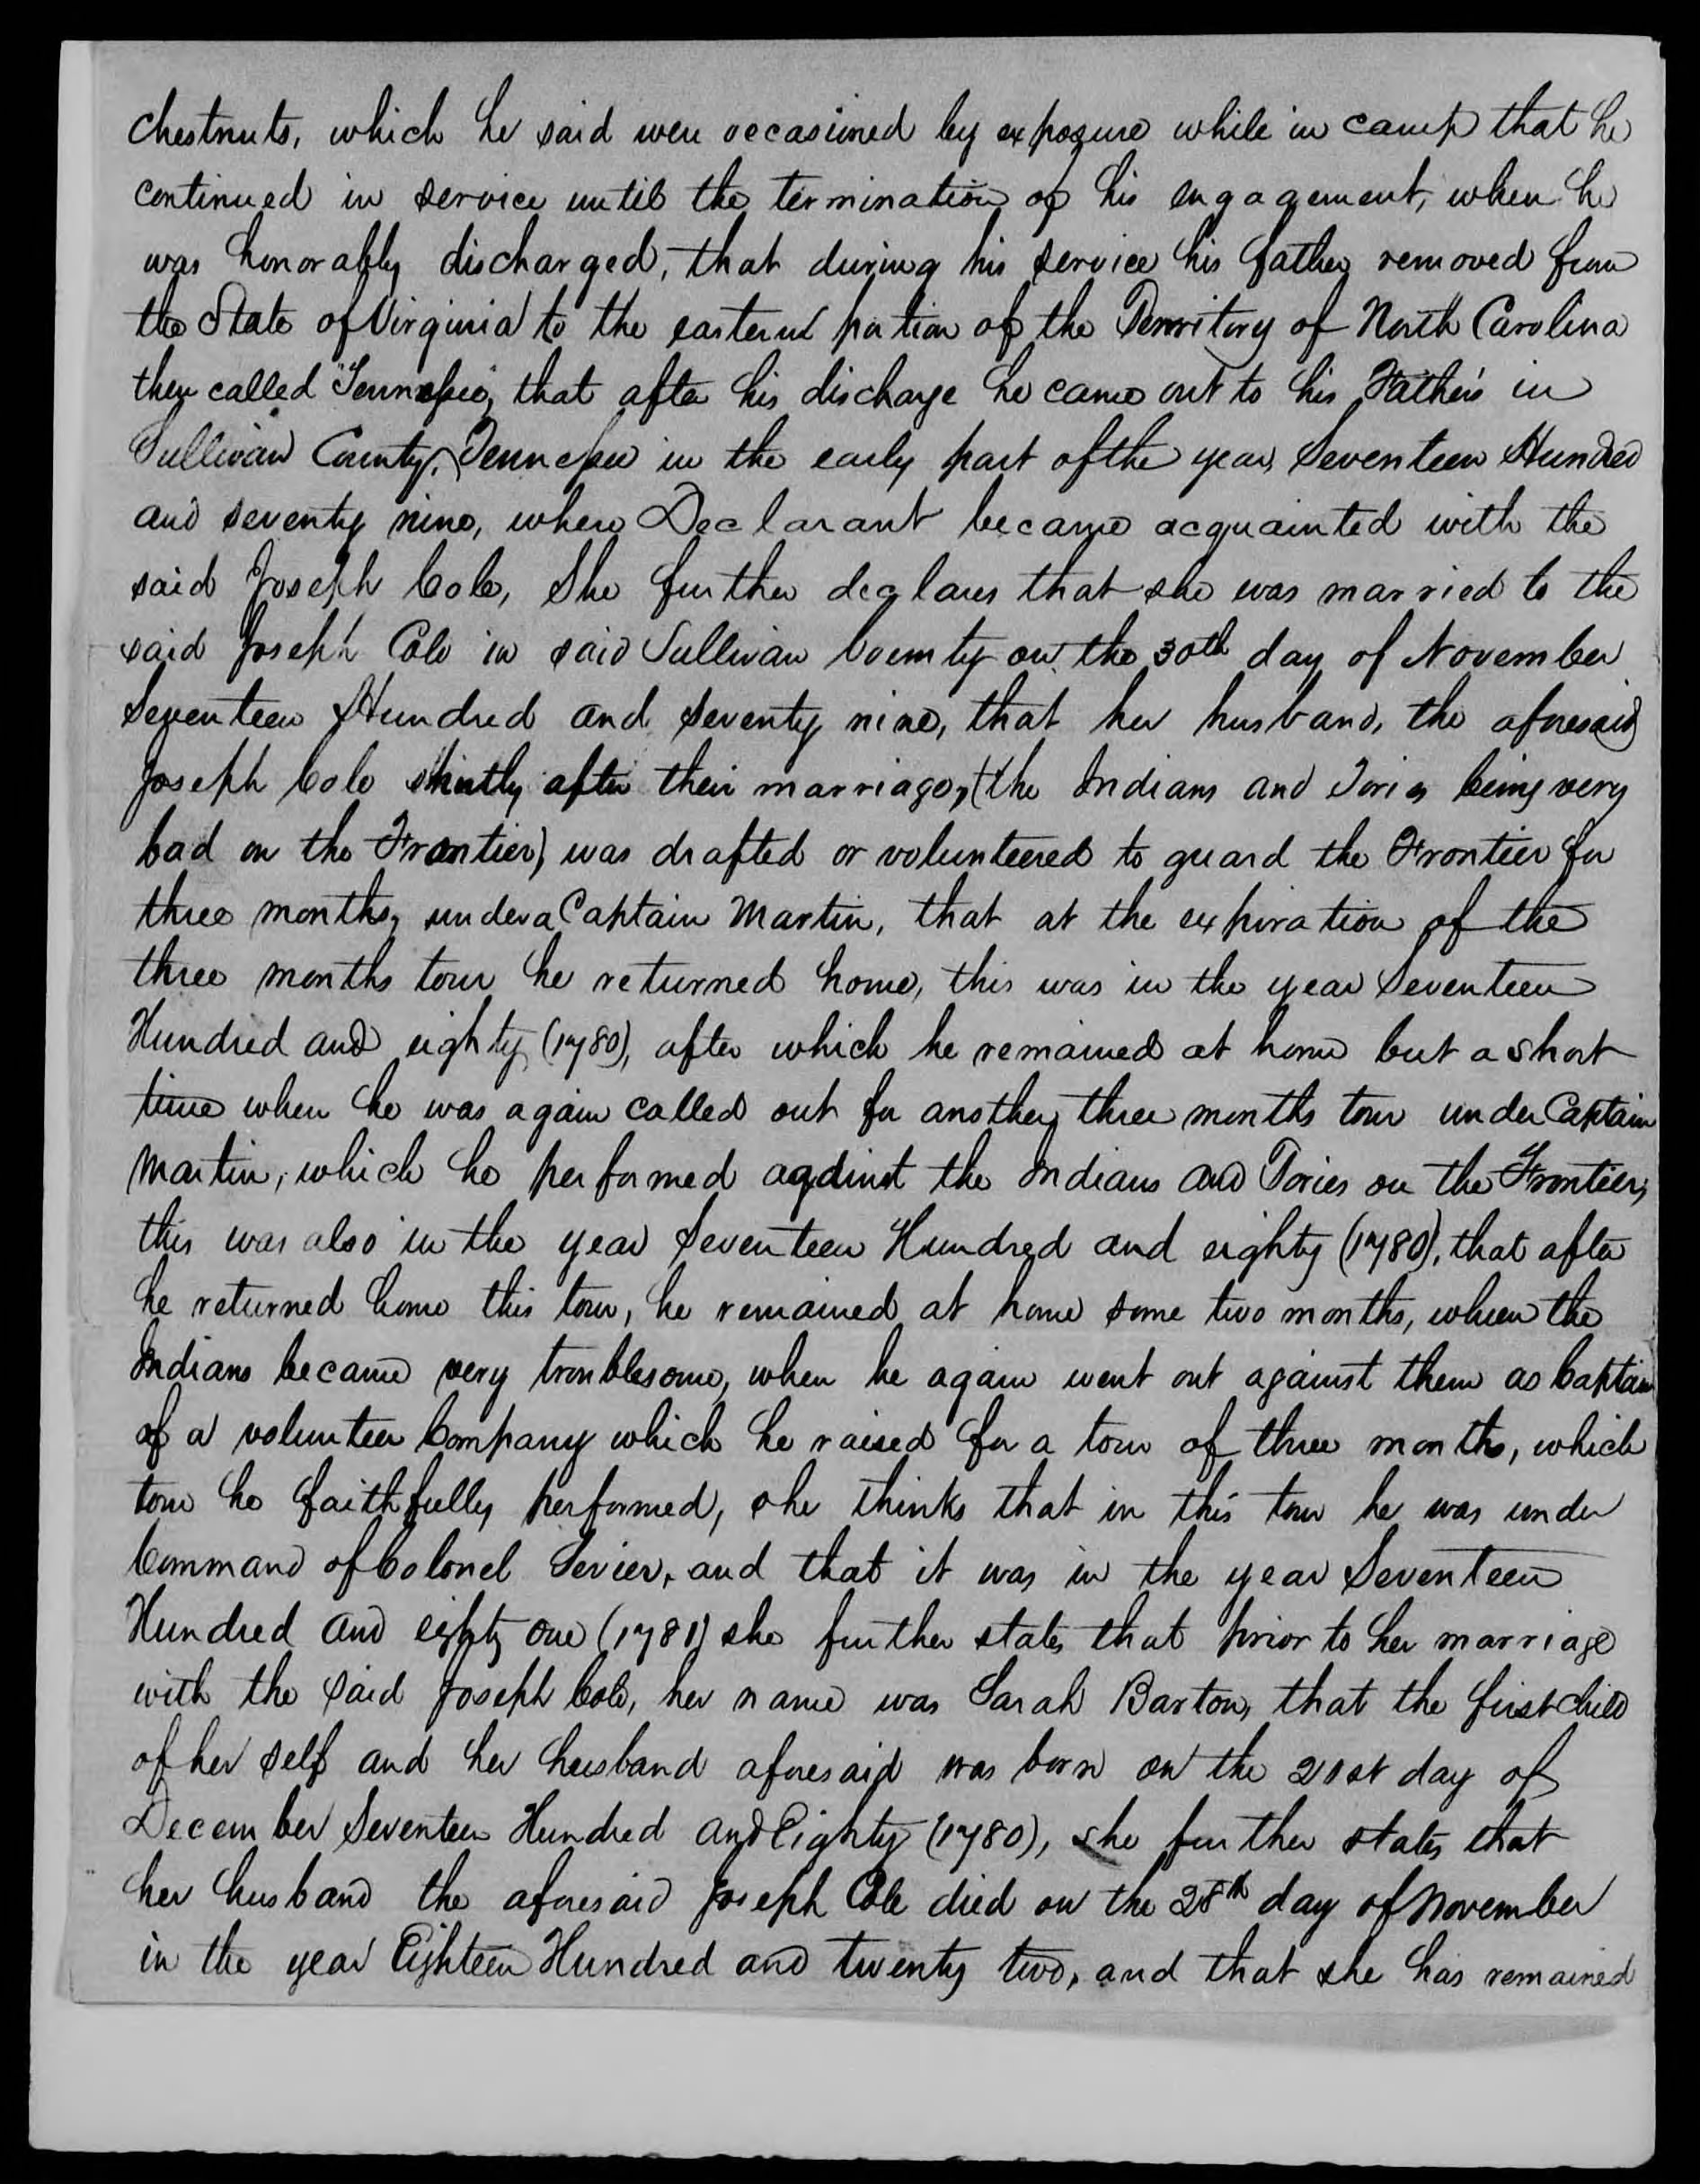 chestnuts, which he said were occasioned by exposure while in camp that he
continued in service until the termination of his engagement, when he
was honorably discharged, that during his service his father removed from
the State of Virginia to the eastern portion of the Territory of North Carolina
then called Tennessee, that after his discharge he came out to his Father's in
Sullivan County, Tennessee in the early part of the year, Seventeen Hundred
and seventy nine, where Declarant became acquainted with the
said Joseph Cole, She further declares that she was married to the
said Joseph Cole in said Sullivan County on the 30th day of November
Seventeen Hundred and seventy nine, that her husband, the aforesaid
Joseph Cole shortly after their marriage, (the Indians and Tories being very
bad on the Frontier) was drafted or volunteered to guard the Frontier for
three months, under a Captain Martin, that at the expiration of the
three months tour he returned home, this was in the year Seventeen
Hundred and eighty (1780), after which he remained at home but a short
time when he was again called out for another three months tour under Captain
Martin, which he performed against the Indians and Tories on the Frontier,
this was also in the year Seventeen Hundred and eighty (1780), that after
he returned home this tour, he remained at home some two months, when the
Indians became very troublesome, when he again went out against them as Captain
of a volunteer Company which he raised for a tour of three months, which
tour he faithfully performed, she thinks that in this tour he was under
Command of Colonel Sevier, and that it was in the year Seventeen
Hundred and eighty one (1781) she further states that prior to her marriage
with the said Joseph Cole, her name was Sarah Barton, that the first child
of her self and her husband aforesaid was born on the 21st day of
December Seventeen Hundred and Eighty (1780), she further states that
her husband the aforesaid Joseph Cole died on the 28th day of November
in the year Eighteen Hundred and twenty two, and that she has remained